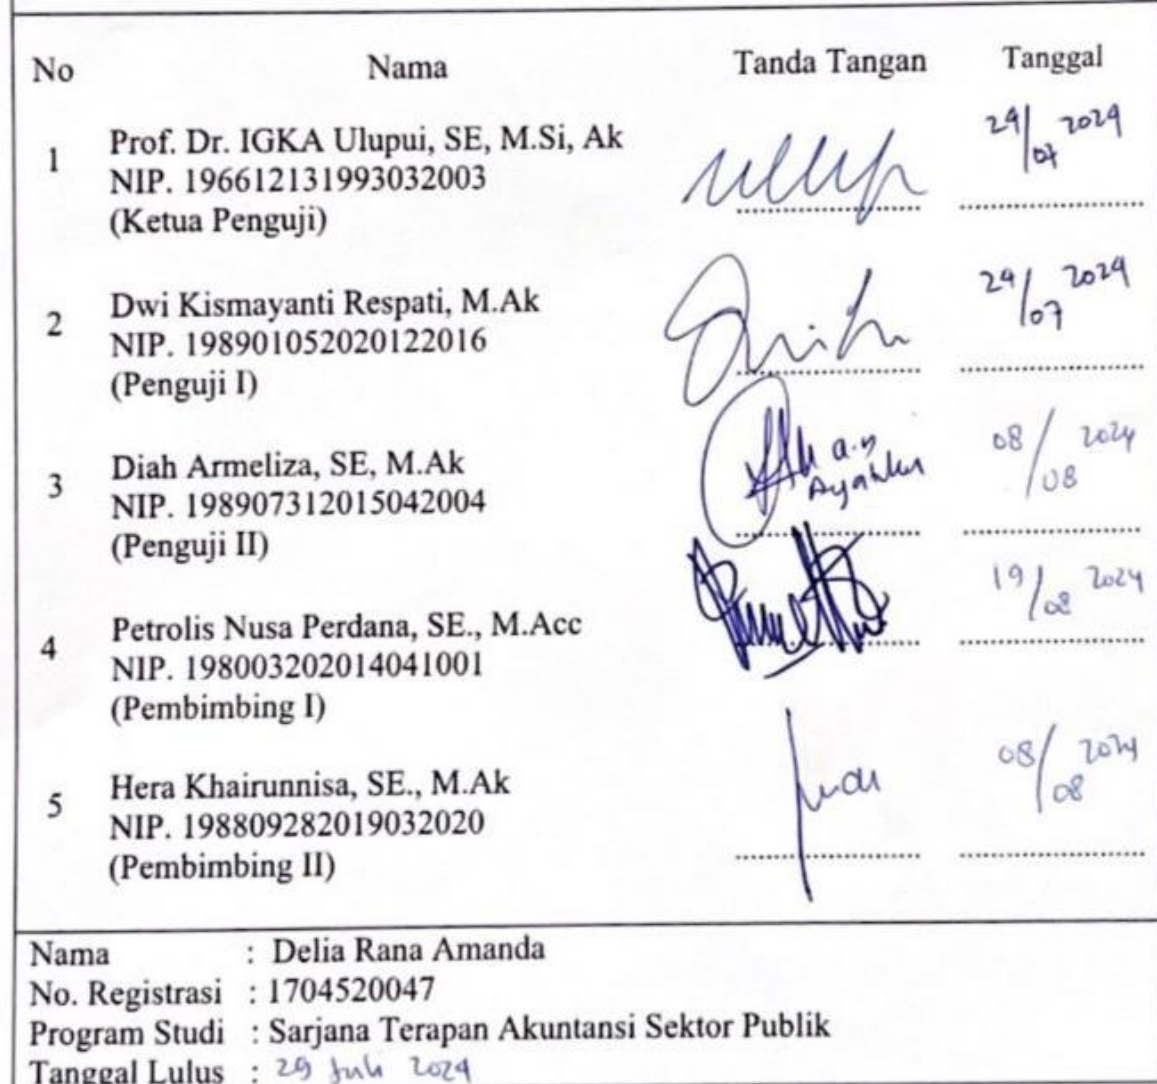 No Nama Tanda Tangan Tanggal
1 Prof. Dr. IGKA Ulupui, SE, M.Si, Ak 29/07 2024
NIP. 196612131993032003
(Ketua Penguji)
2 Dwi Kismayanti Respati, M.Ak 29/07 2024
NIP. 198901052020122016
(Penguji I)
3 Diah Armeliza, SE, M.Ak a.n 08/08 2024
NIP. 198907312015042004
(Penguji II)
4 Petrolis Nusa Perdana, SE., M.Acc 19/08 2024
NIP. 198003202014041001
(Pembimbing I)
5 Hera Khairunnisa, SE., M.Ak 08/08 2024
NIP. 198809282019032020
(Pembimbing II)
Nama : Delia Rana Amanda
No. Registrasi : 1704520047
Program Studi : Sarjana Terapan Akuntansi Sektor Publik
Tanggal Lulus : 29 Juli 2024